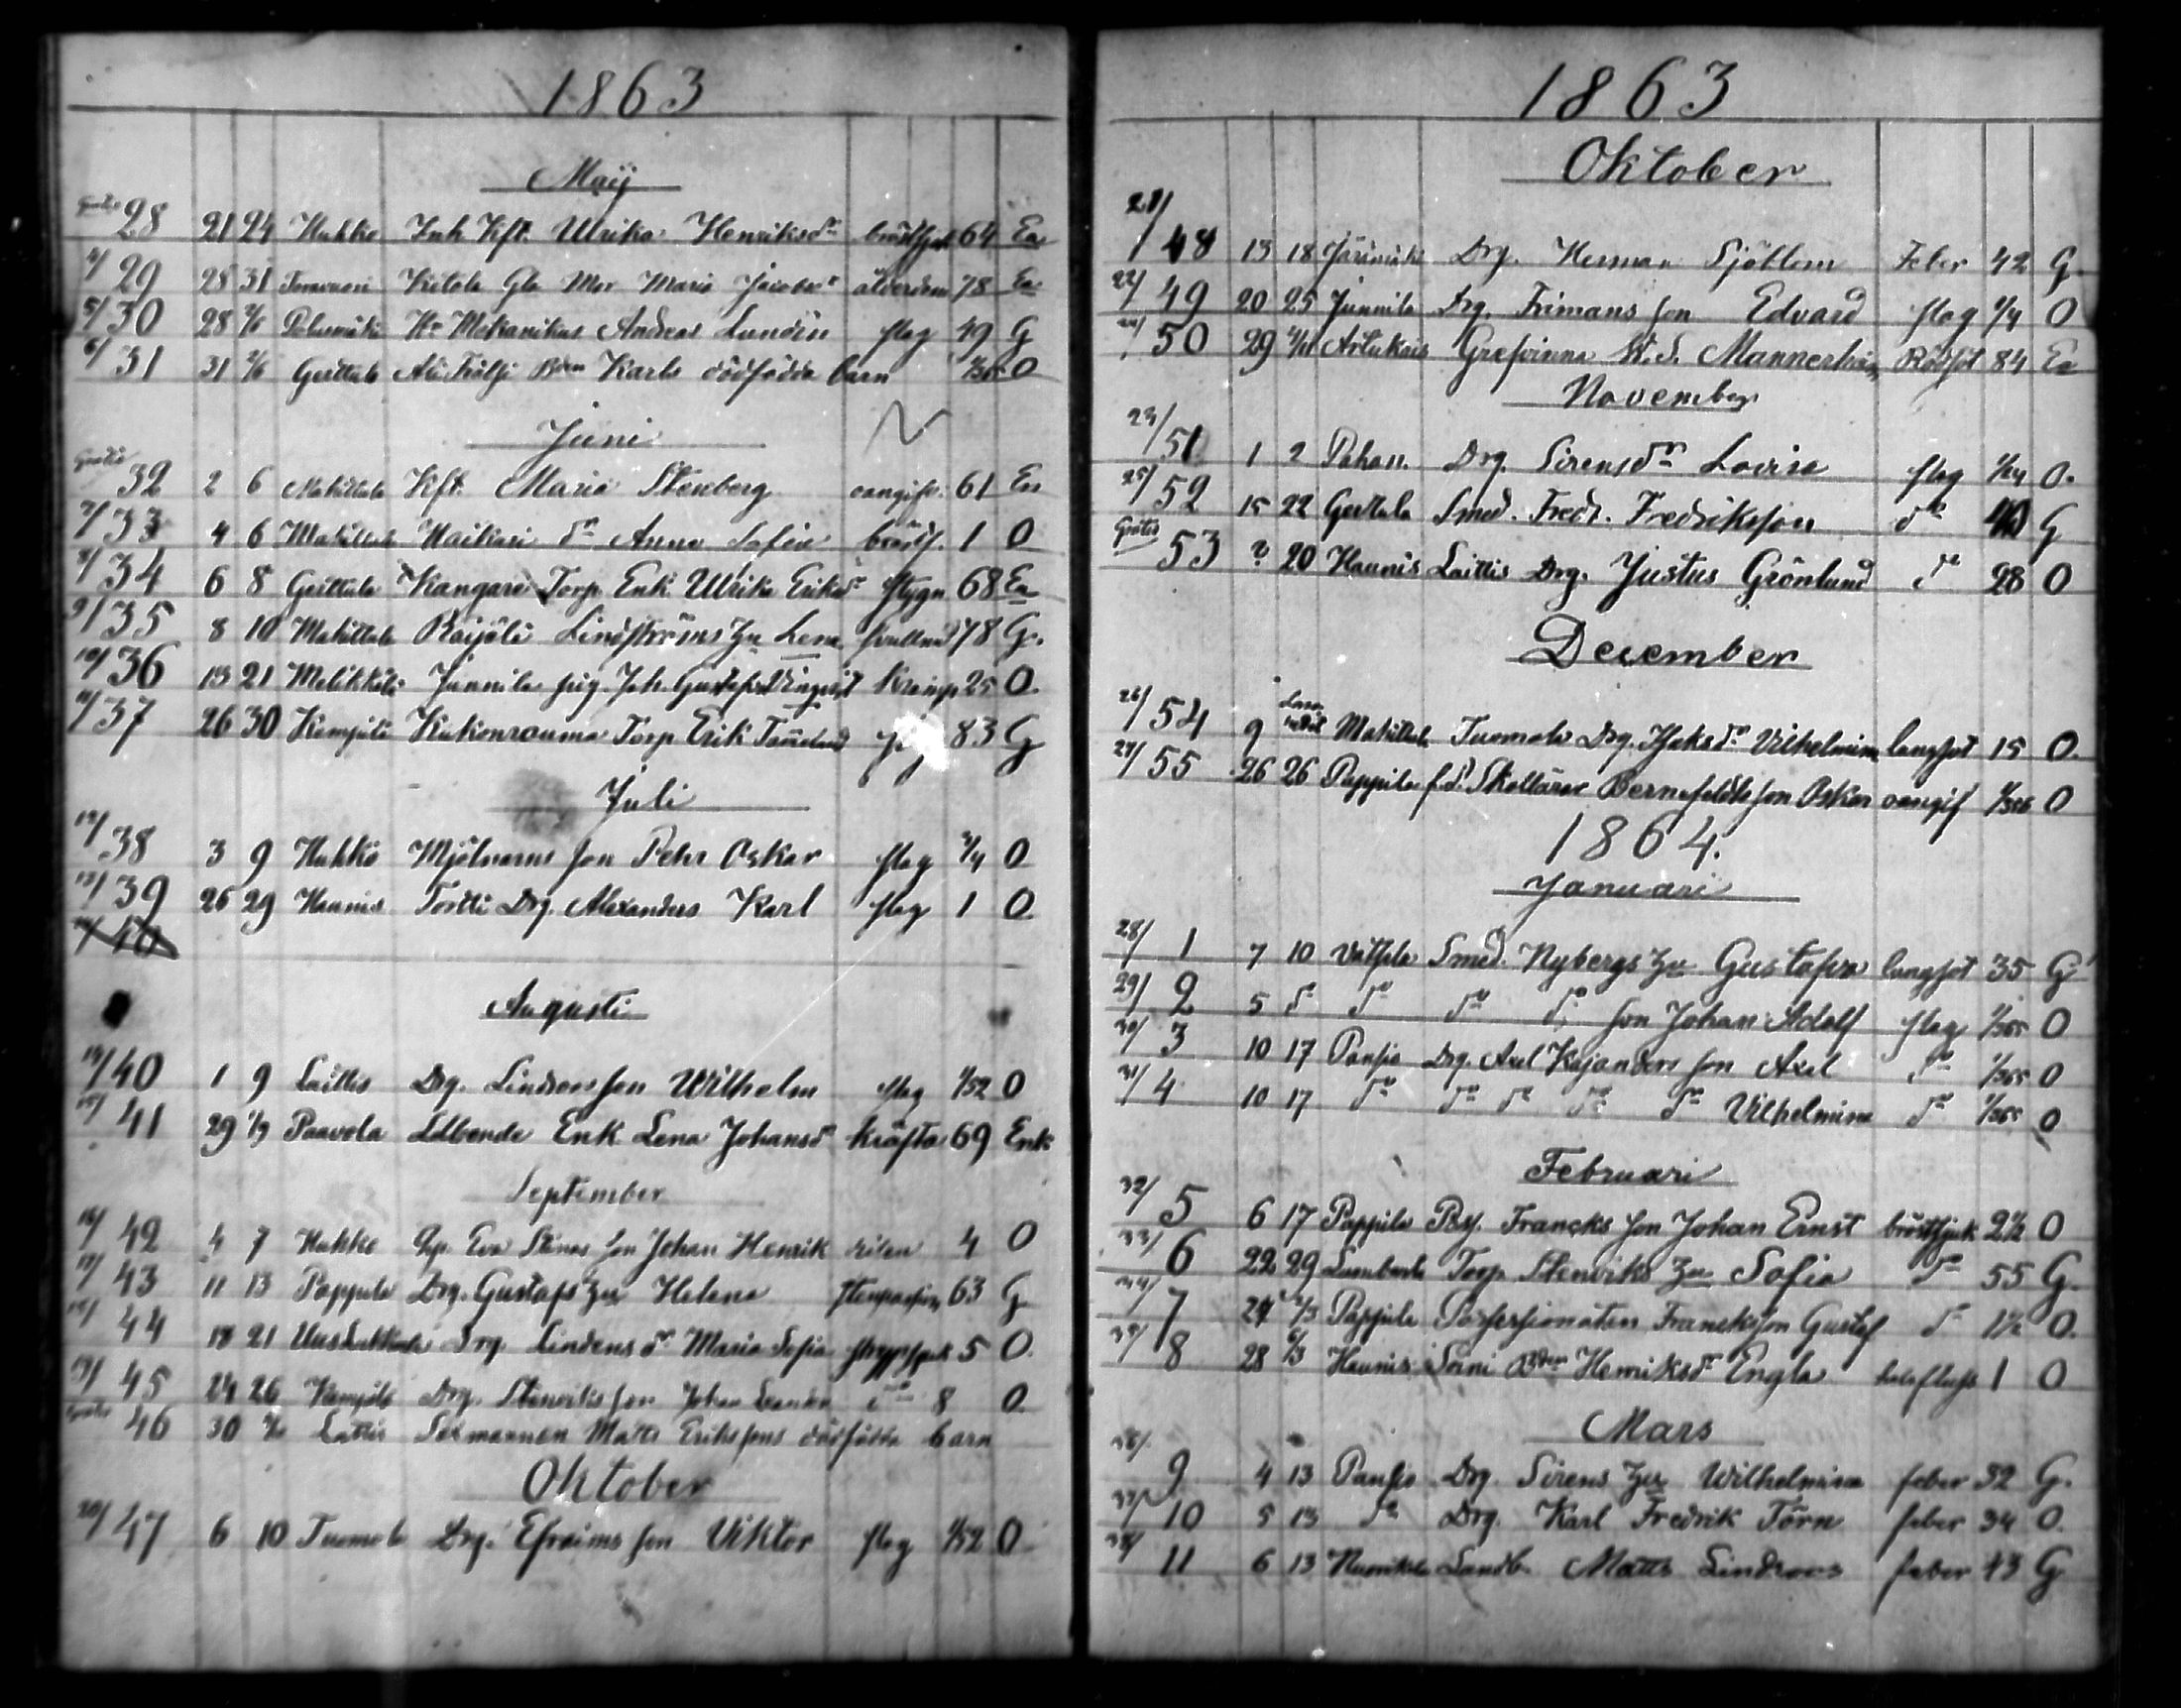 1863
Maÿ
28 21 24 Huhko Inh. Kft. Ulrika Henriksdr bröstsjuk 64 Ea
29 28 31 Kitala Gla Mor Maria Jacobsdr ålderdom 78 Ea
5/30 28 2/6 Mekanikus Andreas Lundin slag 49 G
6/31 31 2/6 Gesttula Karls dödfödda barn O
Juni
Gratis 32 2 6 Mahittula Kft. Maria Stenberg oangifv. 61 En
7/33 4 6 Mahittula dr Anna Sofia 1 O
8/34 6 8 Kangare Torp. Enk Ulrika Eriksdr stygn 68 Ea
9/35 8 10 Mahittula Lindströms Hu Lena 78 G.
10/36 13 21 Junnila pig. Joh. kramp 25 O.
11/37 26 30 Torp Erik 83 G
Juli
12/38 3 9 Huhko Mjölnarns son Pehr Oskar slag 3/4 O
13/39 26 29 Haunis Tortti Drg. Alexanders Karl slag 1 O
Augusti
14/40 1 9 Laittis Drg. Lindroos son Wilhelm slag 1/52 O
15/41 29 1/9 Paavola Enk Lena Johansdr kräfta 69 Enk
September
16/42 4 7 Huhko Eva Stinas son Johan Henrik 4 O
17/43 11 13 Pappila Drg. Gustafs Hu Helena 63 G
18/44 18 21 Drg Lindens dr Maria Sofia 5 O.
19/45 24 26 Drg. son Johan do 8 O.
Gratis 46 30 Matts Erikssons dödfödda barn
Oktober
20/47 6 10 Tuomola Drg. Efraims son Viktor slag 1/52 O
1863
Oktober
21/48 13 18 Drg. Herman Sjöblom Feber 42 G.
22/49 20 25 Junnila Drg. Frimans son Edvard slag 1/4 O
50 29 Artukais Grefvinna Mannerheim Rödsot 84 Ea
November
23/51 1 2 Pahan. Drg. Sirensdr Lovisa slag 1/24 O.
25/52 15 22 Smed. Fredr. Fredriksson do G
Gratis 53 ? 20 Haunis Laittis Drg. Justus Grönlund do 28 O
December
26/54 9 Mahittula Tuomola Drg. Isaksdr Vilhelmina lungsot 15 O.
27/55 26 26 Pappila f.d. son Oskar oangif 1/366 O
1864.
Januari
28/1 7 10 Vätsela Smed. Nybergs Hu Gustafva lungsot 35 G
29/2 5 do do do do son Johan Adolf slag 1/365 O
30/3 10 17 Pansio Drg. Axel Kajanders son Axel do 1/365 O
31/4 10 17 do do do do do Vilhelmina do 1/365 O
Februari
32/5 6 17 Pappila Francks son Johan Ernst bröstsjuk 2 1/2 O
33/6 22 29 Torp. Stenviks Hu Sofia do 55 G.
34/7 24 Pappila Possessionaten Franckson Gustaf do 1 1/2 O.
35/8 28 6/3 Haunis Soini Henriksdr Engla 1 O
Mars
36/9 4 13 Pansio Drg Sirens Hu Wilhelmina feber 32 G.
37/10 5 13 do Drg. Karl Fredrik Törn feber 34 O.
38/11 6 13 Landb. Matts Lindroos feber 43 G